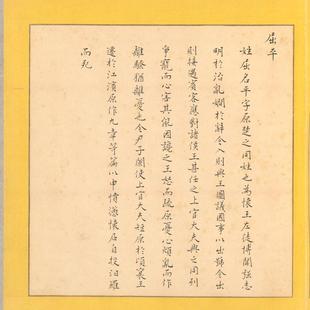 屈平
姓屈名平字原楚之同姓也為懷王左徒博聞強志
明於治亂嫻於辭令入則與王圖議國事以出號令出
則接遇賓客應對諸侯王甚任之上官大夫與之同列
爭寵而心害其能因讒之王怒而疏原憂心煩亂而作
離騷猶離憂也令尹子蘭使上官大夫短原於頃襄王
遷於江濱原作九章等篇以申憤懣懷石自投汨羅
而死